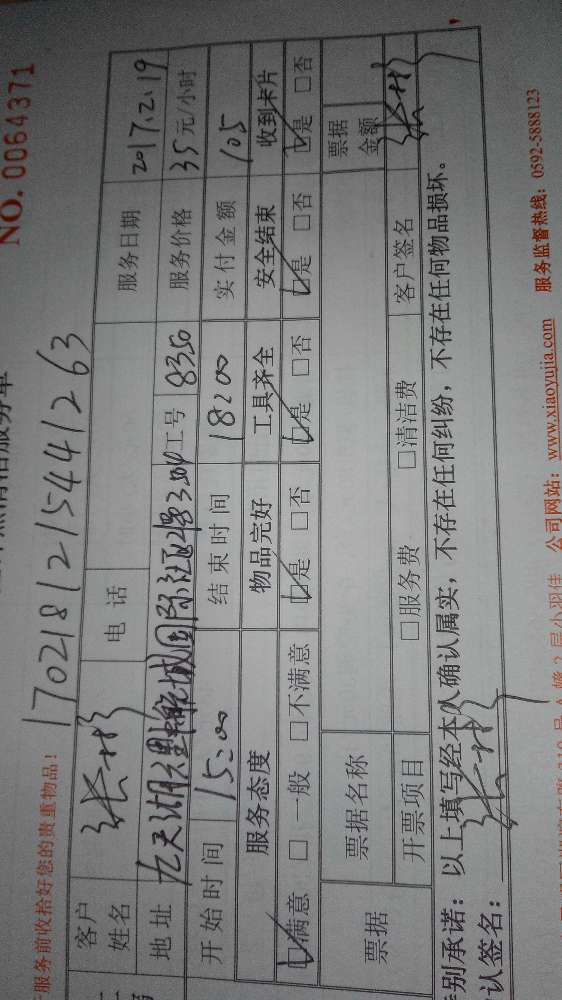 NO. 0064371
服务前收拾好您的贵重物品！
1702181215441263
客户姓名 电话 服务日期 2017.2.19
地址 国际社区 304 工号 8350 服务价格 35元/小时
开始时间 15:00 结束时间 18:00 实付金额 105
服务态度 物品完好 工具齐全 安全结束 收到卡片
☑满意 □一般 □不满意 ☑是 □否 ☑是 □否 ☑是 □否 ☑是 □否
票据 票据名称 票据金额
开票项目 □服务费 □清洁费 客户签名
别承诺：以上填写经本人确认属实，不存在任何纠纷，不存在任何物品损坏。
认签名：
2层小羽佳 公司网站：www.xiaoyujia.com 服务监督热线：0592-5888123